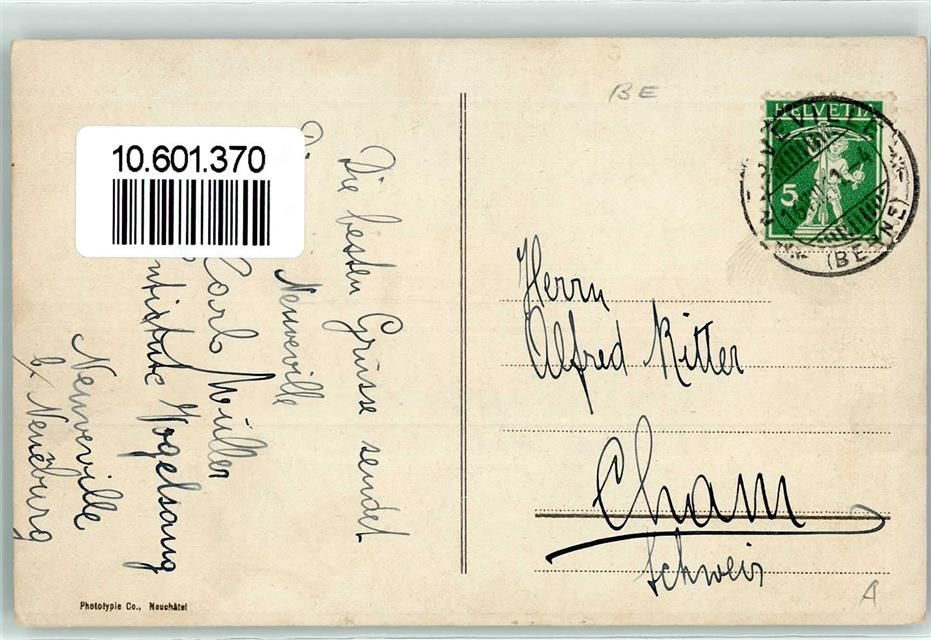 10.601.370
BE
HELVETIA
5
(BERNE)
Die besten Grüsse sendet
Neuveville
Carl Müller
Institute Vogelsang
Neuveville
b/ Neuenburg
Herrn
Alfred Ritter
Cham
Schweiz
Phototypie Co., Neuchâtel
A